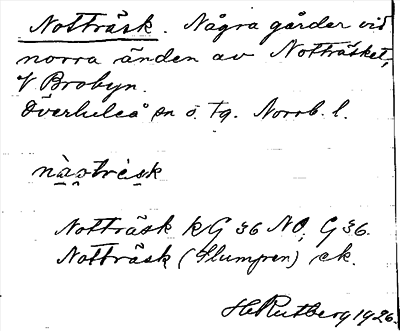 Notträsk. Några gårder vid
norra änden av Notträsket,
V Brobyn.
Överluleå sn ö. tg. Norrb. l.
Notträsk kG 36 NO, G 36.
Notträsk (Slumpen) ek.
H Rutberg 1926.